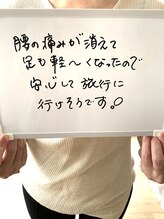 腰の痛みが消えて
足も軽〜くなったので
安心して旅行に
行けそうです。